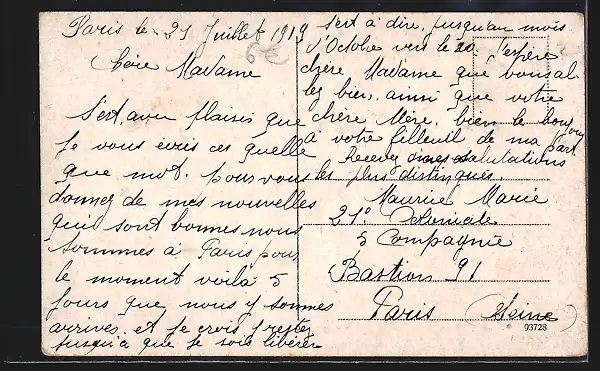 Paris le 21 Juillet 1919
6€
Chère Madame
S'est avec plaisir que
Je vous écris ces quelle
que mot. pour vous
donnez de mes nouvelles
qui sont bonnes nous
sommes à Paris pour
le moment voilà 5
Jours que nous y sommes
arrives. et Je crois y restez
Jusqu'a que Je sois libérer
s'est à dire, Jusqu'au mois
d'Octobre vers le 20. J'espère
chère Madame que vous al
lez bien, ainsi que votre
chère Mère, bien le bonjour
à votre filleul de ma part.
Recevez mes salutations
les plus distingués.
Maurice Marie
21e Coloniale
5 Compagnie
Bastion 91
Paris (Seine)
93728